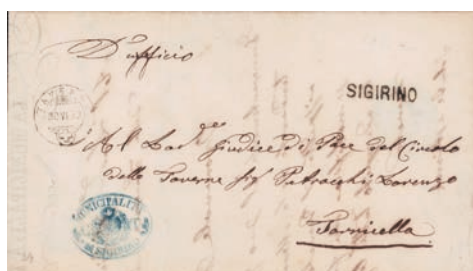 D'ufficio
SIGIRINO
22 VI
Al Lod. Giudice di Pace del Circolo
delle Taverne Sig Petrocchi Lorenzo
Torricella
MUNICIPALITÀ
DI SIGIRINO